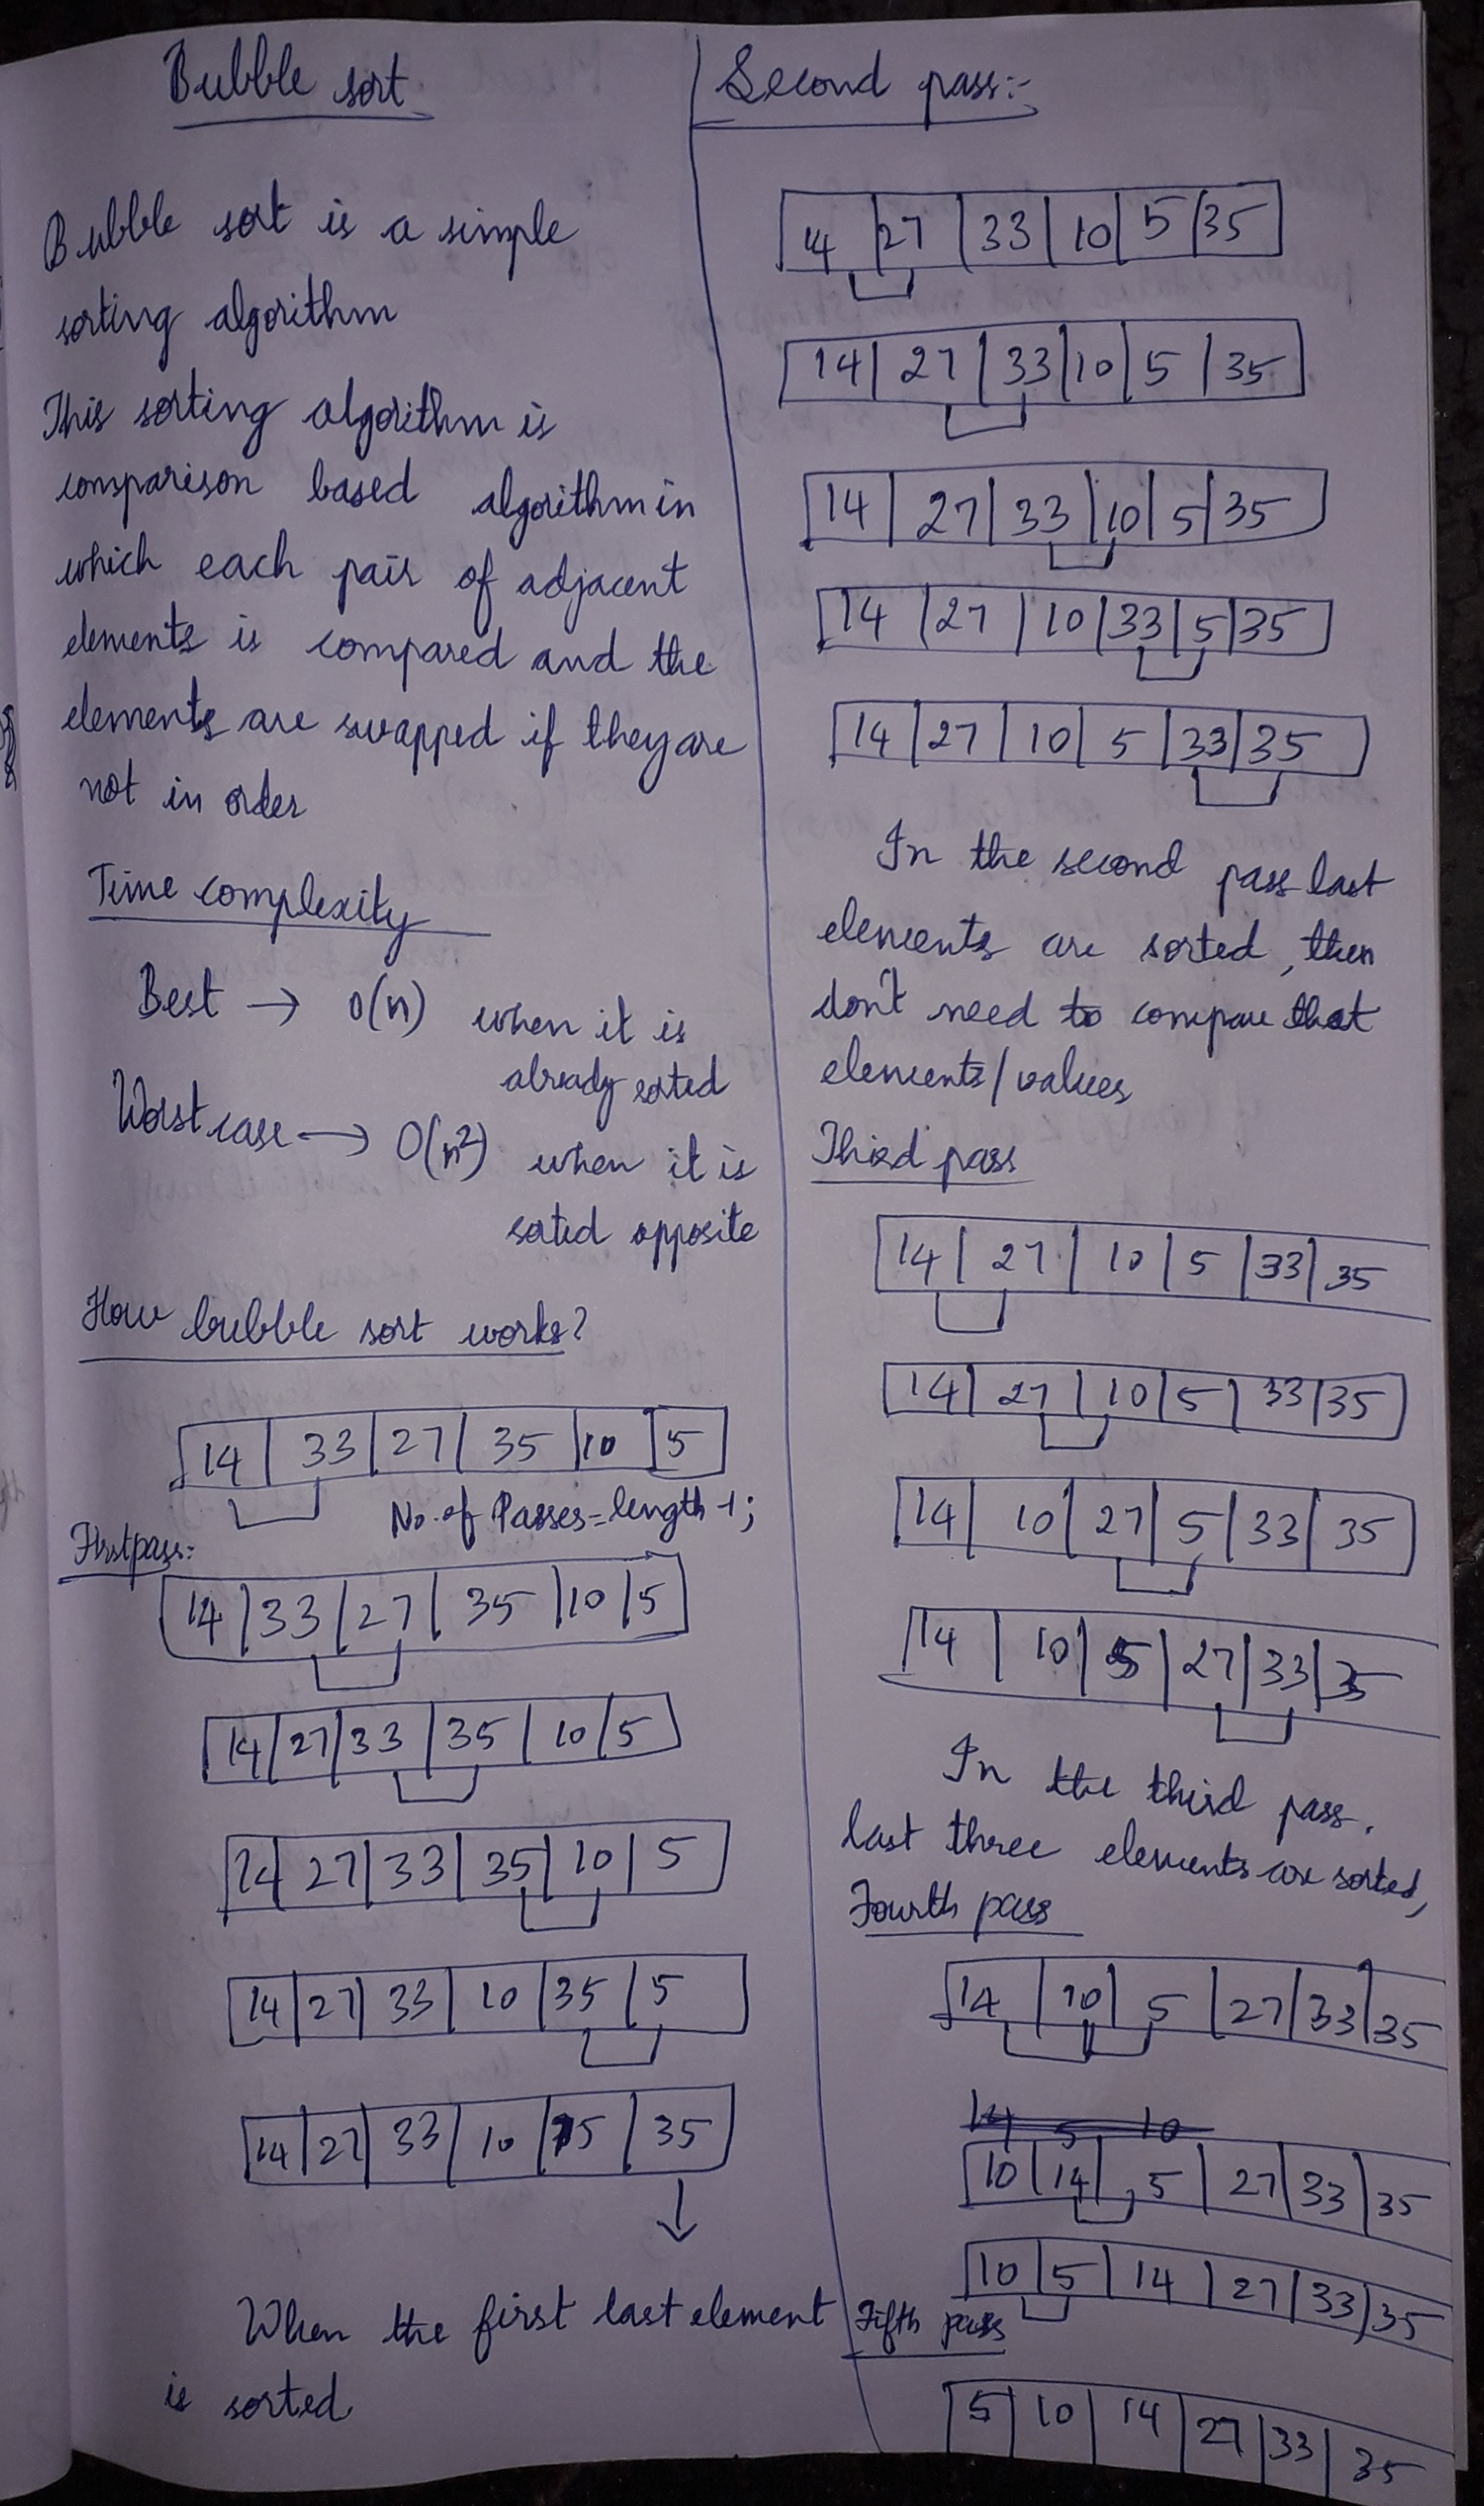 Bubble sort
Bubble sort is a simple
sorting algorithm
This sorting algorithm is
comparison based algorithm in
which each pair of adjacent
elements is compared and the
elements are swapped if they are
not in order
Time complexity
Best → O(n) when it is
already sorted
Worst case → O(n²) when it is
sorted opposite
How bubble sort works?
14 33 27 35 10 5
No. of Passes = length - 1;
First pass:-
14 33 27 35 10 5
14 27 33 35 10 5
14 27 33 35 10 5
14 27 33 10 35 5
14 27 33 10 5 35
When the first last element
is sorted
Second pass:-
14 27 33 10 5 35
14 27 33 10 5 35
14 27 33 10 5 35
14 27 10 33 5 35
14 27 10 5 33 35
In the second pass last
elements are sorted, then
don't need to compare that
elements/values
Third pass
14 27 10 5 33 35
14 27 10 5 33 35
14 10 27 5 33 35
14 10 5 27 33 35
In the third pass.
last three elements are sorted,
Fourth pass
14 10 5 27 33 35
14 5 10
10 14 5 27 33 35
10 5 14 27 33 35
Fifth pass
5 10 14 27 33 35